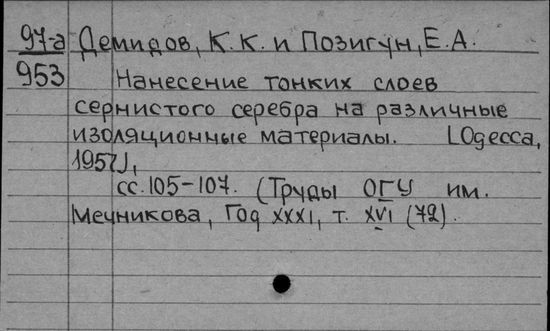 97-а Демидов, К.К. и Позигун, Е.А.
953 Нанесение тонких слоев
сернистого серебра на различные
изоляционные материалы. [Одесса,
1957],
сс. 105-107. (Труды ОГУ им.
Мечникова, Год XXXI, т. XVI (72).